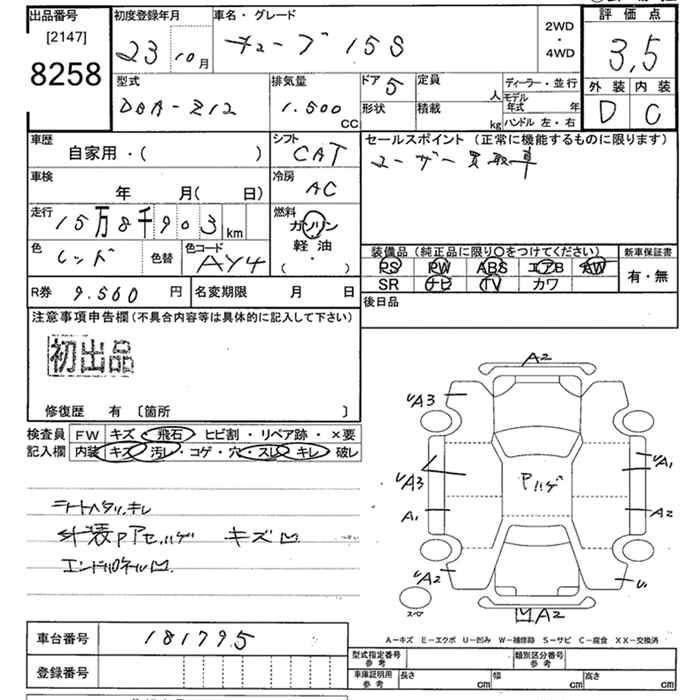 出品番号 初度登録年月 車名・グレード 評価点
[2147] 23 10月 キューブ 15S 2WD・4WD 3.5
8258 型式 排気量 ドア 5 定員 人 ディーラー・並行 外装 内装
DBA-Z12 1.500 CC 形状 積載 kg モデル年式 年 D C
ハンドル 左・右
車歴 シフト セールスポイント (正常に機能するものに限ります)
自家用・( ) CAT ユーザー買取車
車検 年 月( 日) 冷房 AC
走行 15万8千903km 燃料 ガソリン 軽油 ( ・ )
色 レッド 色替 色コード AY4 装備品 (純正品に限り〇をつけてください) 新車保証書
PS PW ABS エアB AW 有・無
R券 9.560 円 名変期限 月 日 SR ナビ TV カワ
後日品
注意事項申告欄 (不具合内容等は具体的に記入して下さい)
初出品
修復歴 有 〔箇所 〕
検査員 FW キズ・飛石 ヒビ割・リペア跡・×要
記入欄 内装 キズ・汚レ・コゲ・穴・スレ・キレ・破レ
シートヘタリ、キレ
外装Pアセ、ハゲ キズ凹
エンドパネル凹
A2
UA3
UA3 Pハゲ UA1
A1 A2
UA2 U1
スペア 凹A2
A-キズ E-エクボ U-凹み W-補修跡 S-サビ C-腐食 XX-交換済
車台番号 181795
型式指定番号 参考 類別区分番号 参考
登録番号 車庫証明用 参考 長さ cm 幅 cm 高さ cm